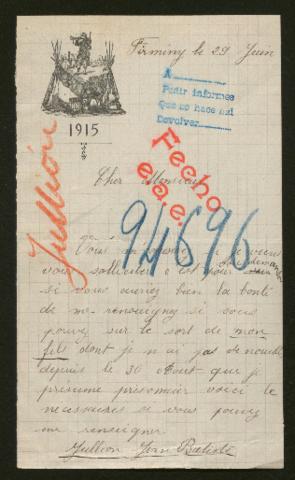 Firminy le 29 Juin
A
Pedir informes
Que no hace así
Devolver
1915
Fecho
Jullion
Cher Monsieur
94696
Vous
demande
vous sollicite c'est pour
si vous auriez bien la bonté
de me renseigny si vous
pouvez sur le sort de mon
fils dont je n'ai pas de nouvelle
depuis le 30 Aout que je
présume prisonier voici le
necessaires si vous pouvez
me renseigner.
Jullion Jean Batiste